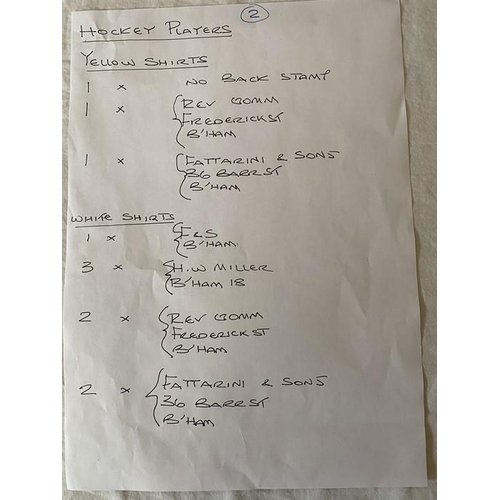 2
HOCKEY PLAYERS
YELLOW SHIRTS
1 x NO BACK STAMP
1 x REV GOMM
FREDERICK ST
B'HAM
1 x FATTARINI & SONS
36 BARR ST
B'HAM
WHITE SHIRTS
1 x F&S
B'HAM.
3 x H.W MILLER
B'HAM 18
2 x REV GOMM
FREDERICK ST
B'HAM
2 x FATTARINI & SONS
36 BARR ST
B'HAM